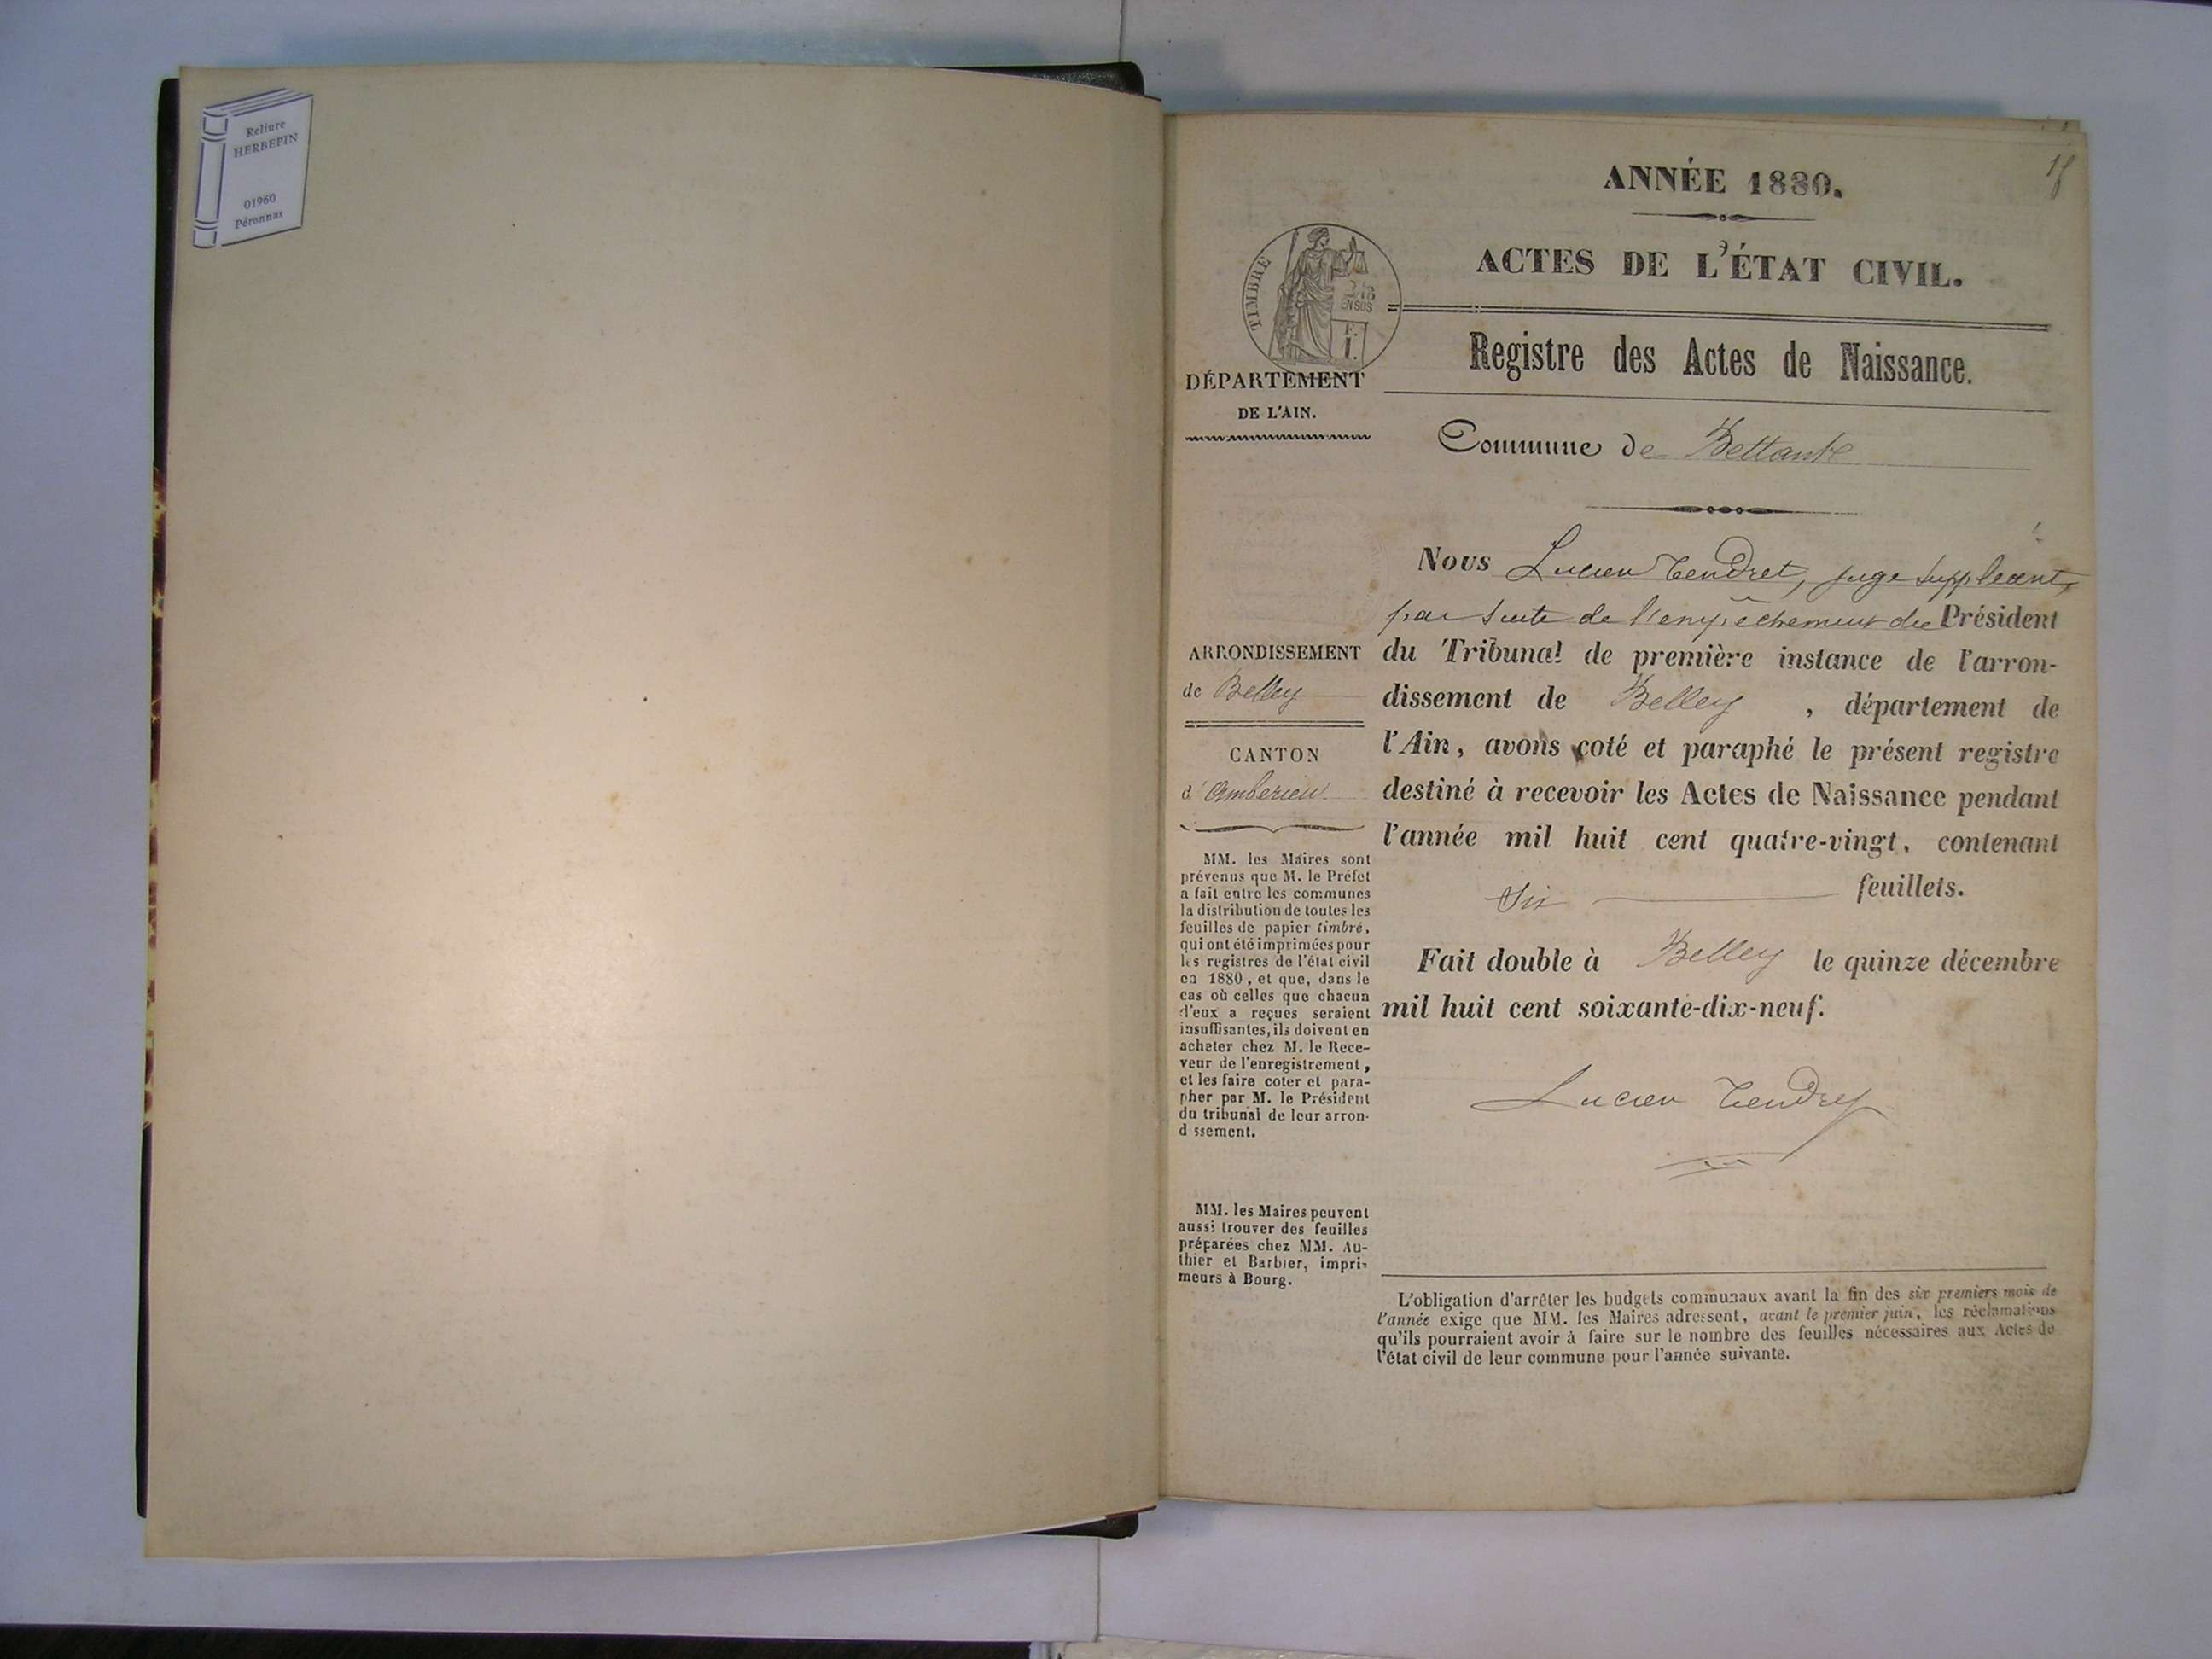 Reliure
HERBEPIN
01960
Péronnas
ANNÉE 1880.
ACTES DE L'ÉTAT CIVIL.
TIMBRE
2/10
EN SUS
Registre des Actes de Naissance.
DÉPARTEMENT
DE L'AIN.
Commune de Bettant
ARRONDISSEMENT
de Belley
CANTON
d'Amberieu
MM. les Maires sont
prévenus que M. le Préfet
a fait entre les communes
la distribution de toutes les
feuilles de papier timbré,
qui ont été imprimées pour
les registres de l'état civil
en 1880, et que, dans le
cas où celles que chacun
d'eux a reçues seraient
insuffisantes, ils doivent en
acheter chez M. le Rece-
veur de l'enregistrement,
et les faire coter et para-
pher par M. le Président
du tribunal de leur arron-
d ssement.
MM. les Maires peuvent
aussi trouver des feuilles
préparées chez MM. Au-
thier et Barbier, impri-
meurs à Bourg.
Nous Lucien Tendret, juge suppléant,
par suite de l'empêchement du Président
du Tribunal de première instance de l'arron-
dissement de Belley, département de
l'Ain, avons coté et paraphé le présent registre
destiné à recevoir les Actes de Naissance pendant
l'année mil huit cent quatre-vingt, contenant
six feuillets.
Fait double à Belley le quinze décembre
mil huit cent soixante-dix-neuf.
Lucien Tendret
L'obligation d'arrêter les budgets communaux avant la fin des six premiers mois de
l'année exige que MM. les Maires adressent, avant le premier juin, les réclamations
qu'ils pourraient avoir à faire sur le nombre des feuilles nécessaires aux Actes de
l'état civil de leur commune pour l'année suivante.